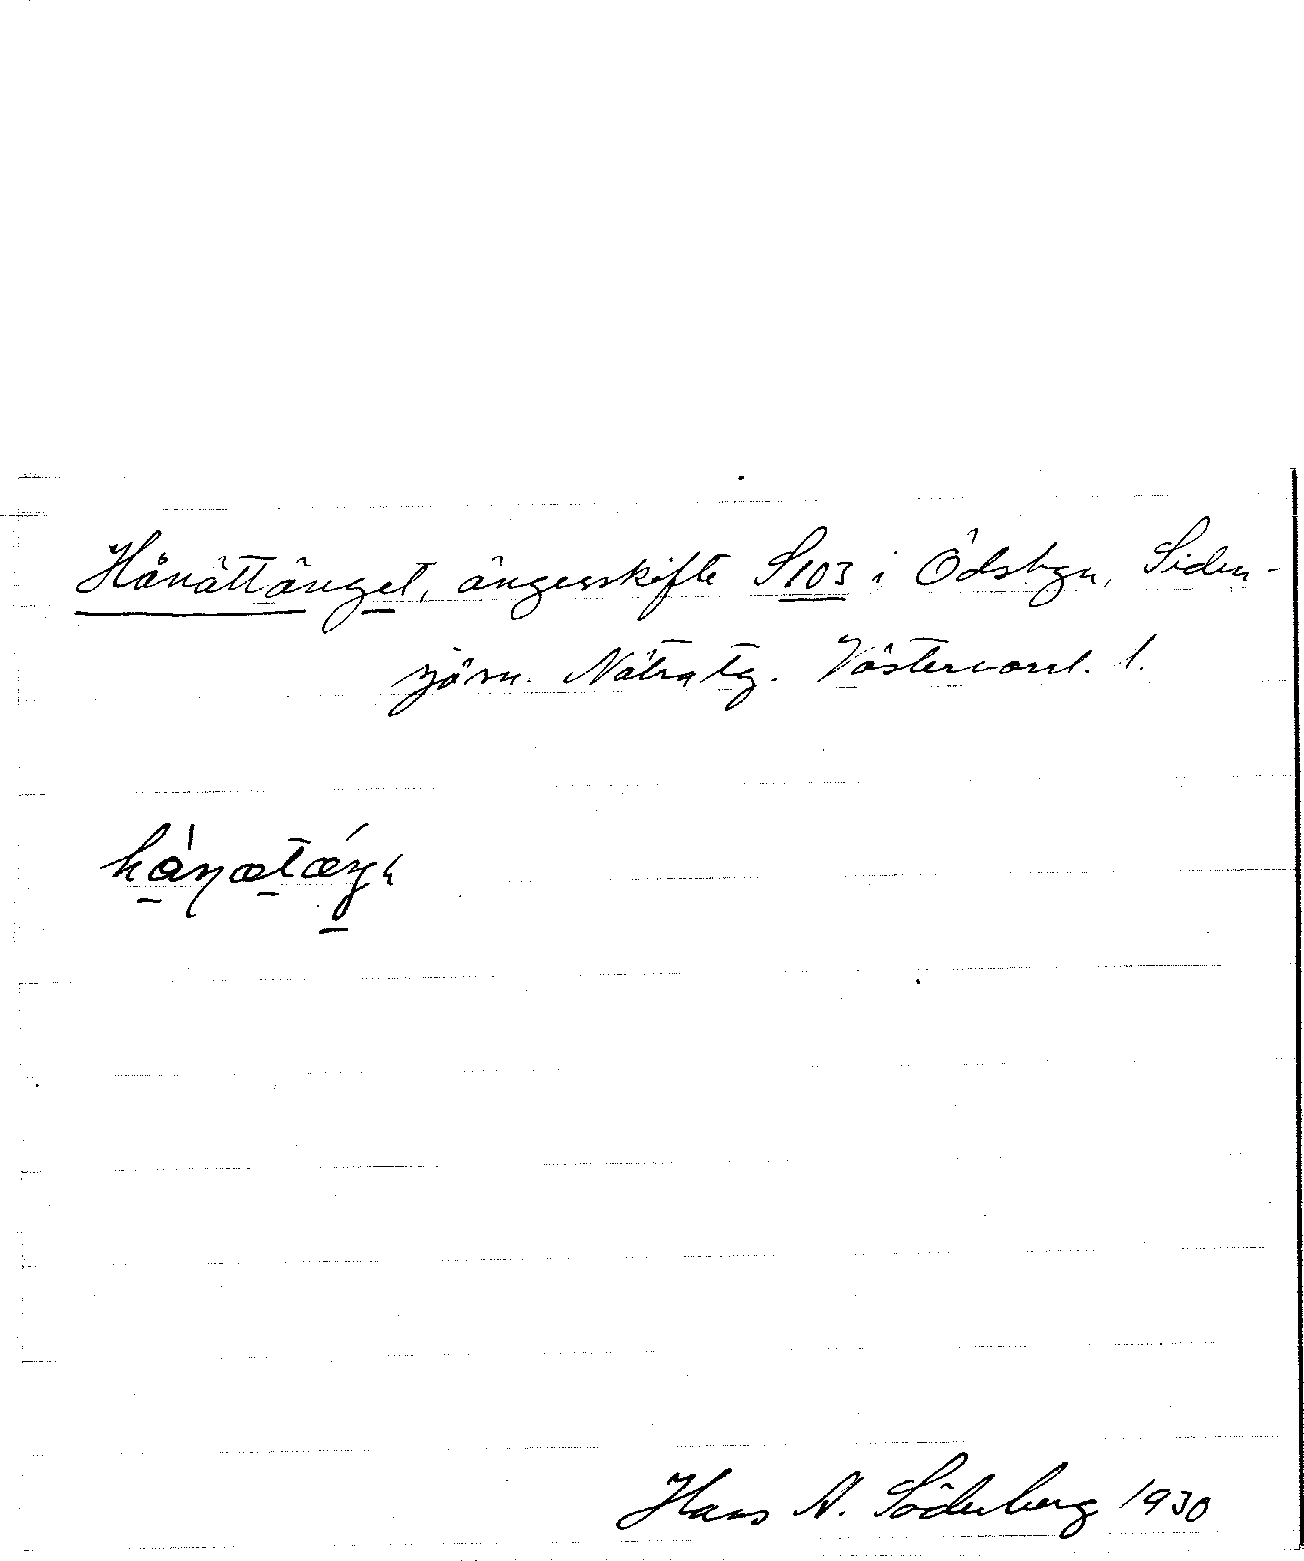 Hånättänget, ängesskifte S103 i Ödsbyn, Siden-
sjö sn. Nätra tg. Västernorrl. l.
Hans A. Söderberg 1930